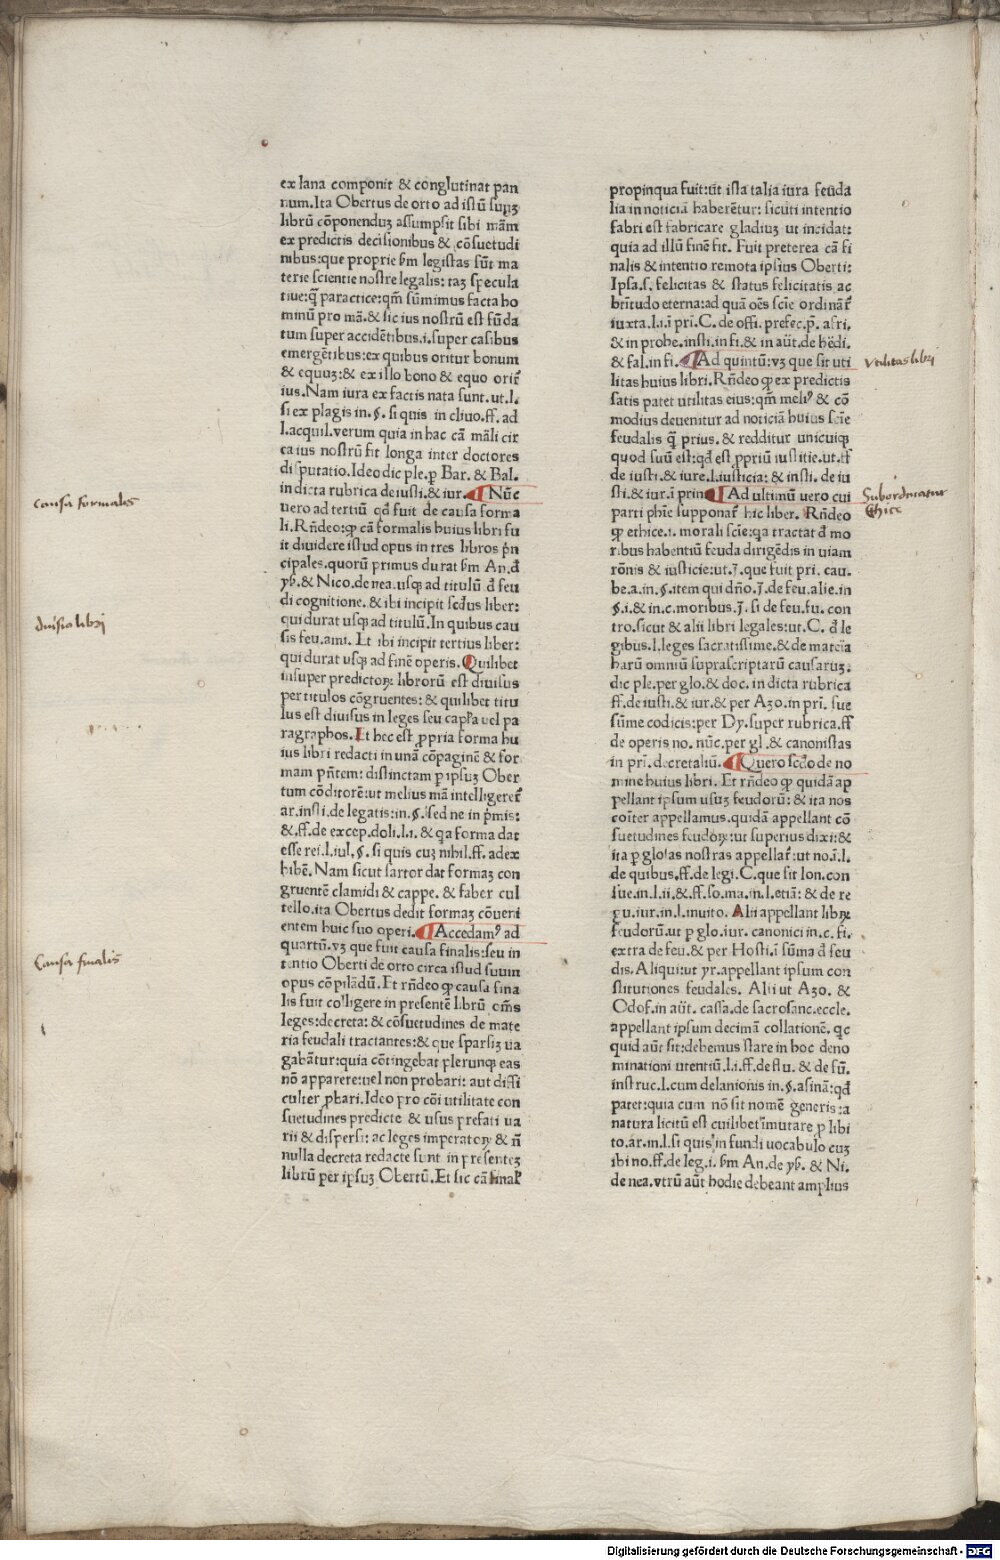 ex lana componit & conglutinat pan
num. Ita Obertus de orto ad istū supꝫ
librū cōponenduꝫ assumpsit sibi mām
ex predictis decisionibus & cōsuetudi
nibus: que proprie ẜm legistas sūt ma
terie scientie nostre legalis: taꝫ specula
tiue: q̄ practice: qm̄ sūmimus facta ho
minū pro mā. & sic ius nostrū est fūda
tum super accidētibus .i. super casibus
emergētibus: ex quibus oritur bonum
& equuꝫ: & ex illo bono & equo orit᷑
ius. Nam iura ex factis nata sunt. ut .l.
si ex plagis in .§. si quis in cliuo. ff. ad
l. acquil. verum quia in hac cā māli cir
ca ius nostrū fit longa inter doctores
disputatio. Ideo dic ple. ꝑ Bar. & Bal.
in dicta rubrica de iusti. & iur. ¶ Nūc
uero ad tertiū qd̄ fuit de causa forma
li. Rn̄deo: ꝙ cā formalis huius libri fu
it diuidere istud opus in tres libros p̄n
cipales. quorū primus durat ẜm An. d̄
yẜ. & Nico. de nea. usq̨ ad titulū d̄ feu
di cognitione. & ibi incipit scd̄us liber:
qui durat usq̨ ad titulū. In quibus cau
sis feu. ami. Et ibi incipit tertius liber:
qui durat usq̨ ad finē operis. Quilibet
insuper predictoꝝ librorū est diuisus
per titulos cōgruentes: & quilibet titu
lus est diuisus in leges seu capl'a uel pa
ragraphos. Et hec est ꝓpria forma hu
ius libri redacti in unā cōpaginē & for
mam pn̄tem: distinctam ꝑ ipsuꝫ Ober
tum cōditorē: ut melius mā intelligeret᷑
ar. insti. de legatis: in .§. sed ne in p̄mis:
& .ff. de excep. doli. l.i. & qa forma dat
esse rei. l. iul. §. si quis cuꝫ nihil. ff. ad ex
hibē. Nam sicut sartor dat formaꝫ con
gruentē clamidi & cappe. & faber cul
tello. ita Obertus dedit formaꝫ cōueni
entem huic suo operi. ¶ Accedamꝰ ad
quartū. vꝫ que fuit causa finalis: seu in
tentio Oberti de orto circa istud suum
opus cōpiladū. Et rn̄deo ꝙ causa fina
lis fuit co'ligere in presentē librū om̄s
leges: decreta: & cōsuetudines de mate
ria feudali tractantes: & que sparsiꝫ ua
gabātur: quia cōtingebat plerunq̨ eas
nō apparere: uel non probari: aut diffi
culter ꝓbari. Ideo pro cōi utilitate con
suetudines predicte & usus prefati ua
rii & dispersi: ac leges imperatoꝝ & n̄
nulla decreta redacte sunt in presenteꝫ
librū per ipsuꝫ Obertū. Et sic cā final'
propinqua fuit: ut ista talia iura feuda
lia in noticiā haberētur: sicuti intentio
fabri est fabricare gladiuꝫ ut incidat:
quia ad illū finē fit. Fuit preterea cā fi
nalis & intentio remota ipsius Oberti:
Ipsa .s. felicitas & status felicitatis ac
btītudo eterna: ad quā oēs scīe ordinat᷑
iuxta .l.i. ī pri. C. de offi. prefec. p̄. afri.
& in prohe. insti. in fi. & in aūt. de hēdi.
& fal. in fi. ¶ Ad quintū: vꝫ que sit uti
litas huius libri. Rn̄deo ꝙ ex predictis
satis patet utilitas eius: qm̄ meliꝰ & cō
modius deuenitur ad noticiā huius scīe
feudalis q̄ prius. & redditur unicuiq̨
quod suū est: qd̄ est ꝓpriū iustitie. ut. ff
de iusti. & iure. l. iusticia: & insti. de iu
sti. & iur. ī prin. ¶ Ad ultimū uero cui
parti phīe supponat᷑ hic liber. Rn̄deo
ꝙ ethice .i. morali scīe: qa tractat d̄ mo
ribus habentiū feuda dirigēdis in uiam
rōnis & iusticie: ut. J. que fuit pri. cau.
be. a. in. §. item qui dn̄o. J. de feu. alie. in
§.i. & in. c. moribus. J. si de feu. fu. con
tro. sicut & alii libri legales: ut. C. d̄ le
gibus. l. leges sacratissime. & de materia
harū omniū suprascriptarū causaruꝫ.
dic ple. per glo. & doc. in dicta rubrica
ff. de iusti. & iur. & per Azo. in pri. sue
sūme codicis: per Dy. super rubrica. ff
de operis no. nūc. per gl. & canonistas
in pri. decretaliū. ¶ Quero scd̄o de no
mine huius libri. Et rn̄deo ꝙ quidā ap
pellant ipsum usuꝫ feudorū: & ita nos
cōiter appellamus. quidā appellant cō
suetudines feudoꝝ: ut superius dixi: &
ita ꝑ glosas nostras appellat᷑: ut no. ī. l.
de quibus. ff. de legi. C. que sit lon. con
sue. in. l. ii. & .ff. so. ma. in. l. etiā: & de re
gu. iur. in. l. inuito. Alii appellant libꝝ
feudorū. ut ꝑ glo. iur. canonici in. c. fi.
extra de feu. & per Hosti. ī sūma d̄ feu
dis. Aliqui: ut yr. appellant ipsum con
stitutiones feudales. Alii ut Azo. &
Odof. in aūt. cassa. de sacrosanc. eccle.
appellant ipsum decimā collationē. qc
quid aūt sit: debemus stare in hoc deno
minationi utentiū. l.i. ff. de flu. & de fū.
instruc. l. cum delanionis in. §. asinā: qd̄
patet: quia cum nō sit nomē generis: a
natura licitū est cuilibet īmutare ꝓ libi
to. ar. in. l. si quis in fundi uocabulo cuꝫ
ibi no. ff. de leg. i. ẜm An. de yẜ. & Ni.
de nea. vtrū aūt hodie debeant amplius
causa formales
diuisio libri
Causa finalis
Vtilitas libri
Subordinatur
Ethice
Digitalisierung gefördert durch die Deutsche Forschungsgemeinschaft - DFG